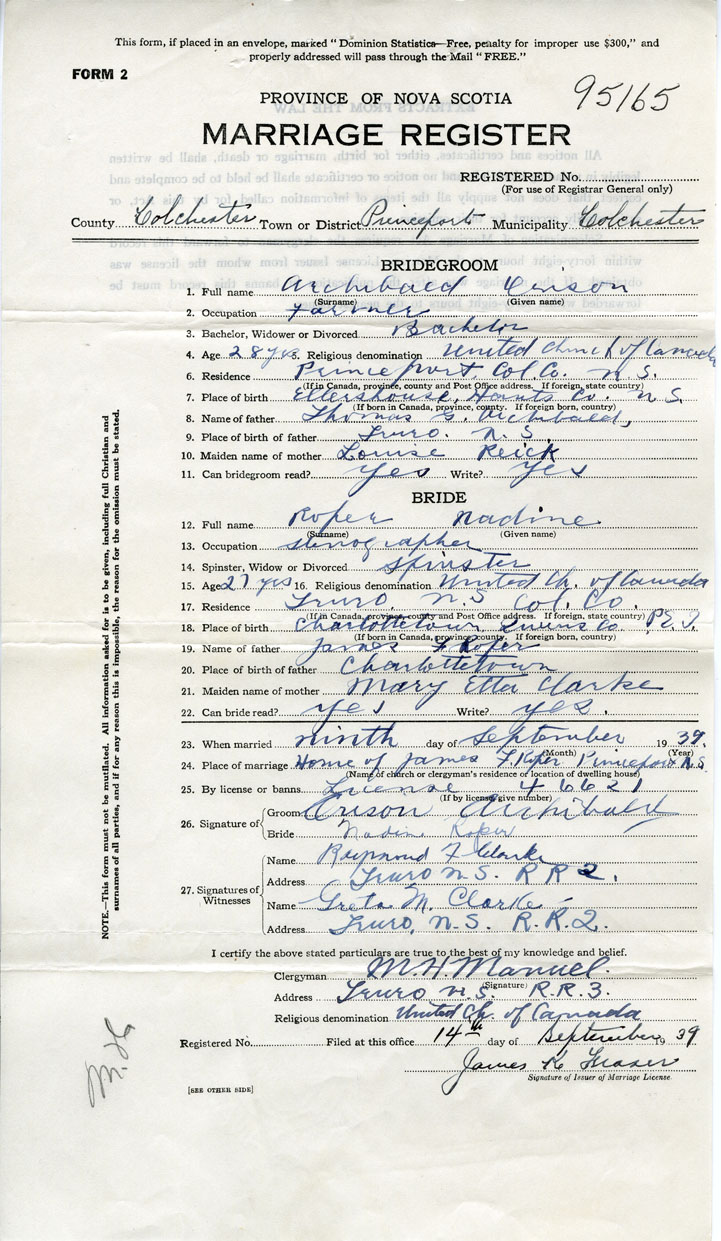 This form, if placed in an envelope, marked "Dominion Statistics—Free, penalty for improper use $300," and
properly addressed will pass through the Mail "FREE."
FORM 2
95165
PROVINCE OF NOVA SCOTIA
MARRIAGE REGISTER
REGISTERED No.
(For use of Registrar General only)
County Colchester Town or District Princeport Municipality Colchester
BRIDEGROOM
1. Full name Archibald Orison
(Surname) (Given name)
2. Occupation Farmer
3. Bachelor, Widower or Divorced Bachelor
4. Age 28 yrs 5. Religious denomination United Church of Canada
6. Residence Princeport Col. Co. N. S.
(If in Canada, province, county and Post Office address. If foreign, state country)
7. Place of birth Ellershouse, Hants Co. N. S.
(If born in Canada, province, county. If foreign born, country)
8. Name of father Thomas G. Archibald,
9. Place of birth of father Truro. N. S.
10. Maiden name of mother Louise Reick
11. Can bridegroom read? Yes Write? Yes
BRIDE
12. Full name Roper Nadine
(Surname) (Given name)
13. Occupation stenographer
14. Spinster, Widow or Divorced Spinster
15. Age 27 yrs 16. Religious denomination United Ch. of Canada
17. Residence Truro, N. S. Col. Co.
(If in Canada, province, county and Post Office address. If foreign, state country)
18. Place of birth Charlottetown Queens Co P.E.I.
(If born in Canada, province, county. If foreign born, country)
19. Name of father James F Roper
20. Place of birth of father Charlottetown
21. Maiden name of mother Mary Etta Clarke
22. Can bride read? yes Write? yes.
23. When married ninth day of September 1939.
(Month) (Year)
24. Place of marriage Home of James F Roper Princeport N.S.
(Name of church or clergyman's residence or location of dwelling house)
25. By license or banns License 46621
(If by license, give number)
26. Signature of Groom Orison Archibald
Bride Nadine Roper
27. Signatures of Witnesses
Name Raymond F Clarke
Address Truro N.S. R R 2.
Name Greta M. Clarke
Address Truro, N.S. R.R.2.
I certify the above stated particulars are true to the best of my knowledge and belief.
Clergyman M H Manuel.
(Signature)
Address Truro N.S. R.R.3.
Religious denomination United Ch. of Canada
Registered No. Filed at this office 14th day of September 1939
James K Fraser
Signature of Issuer of Marriage License.
[SEE OTHER SIDE]
NOTE.—This form must not be mutilated. All information asked for is to be given, including full Christian and
surnames of all parties, and if for any reason this is impossible, the reason for the omission must be stated.